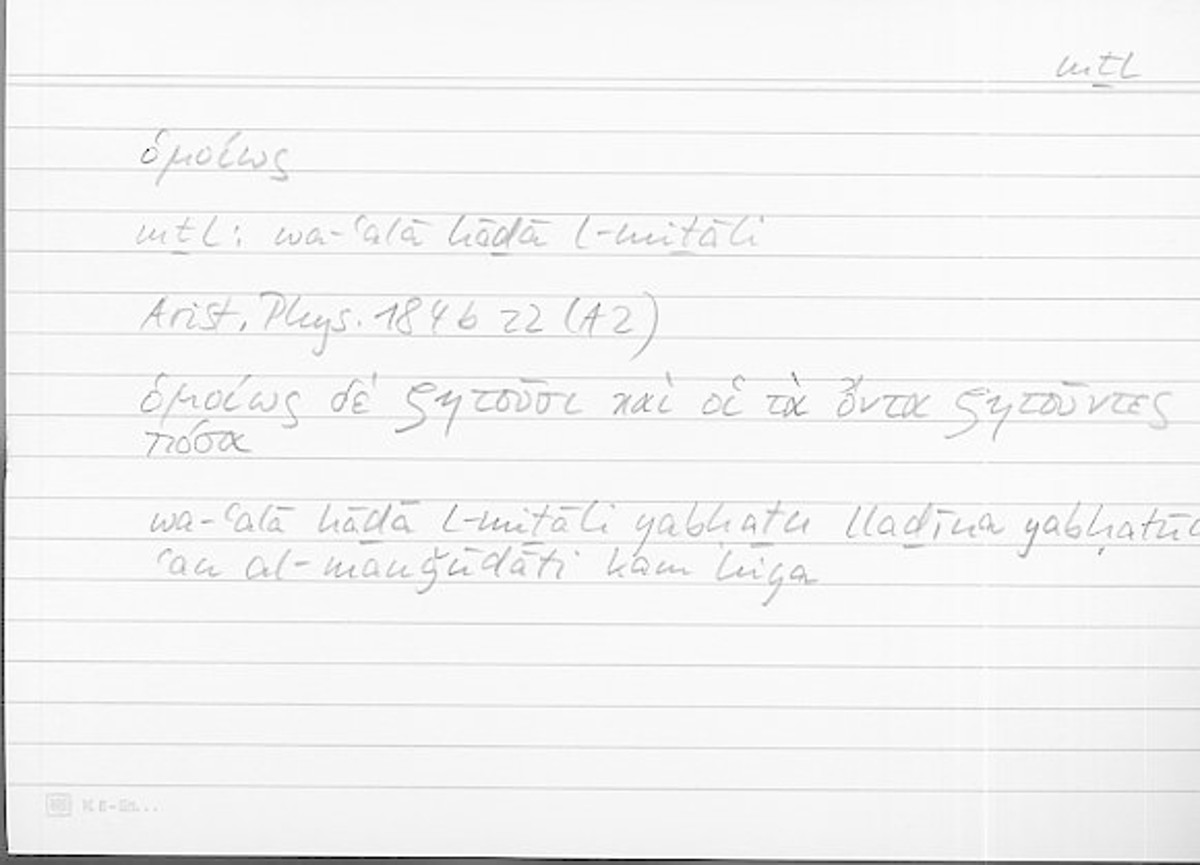 mṯl
ὁμοίως
mṯl: wa-ʿalā hāḏā l-miṯāli
Arist., Phys. 184 b 22 (A 2)
ὁμοίως δὲ ζητοῦσι καὶ οἱ τὰ ὄντα ζητοῦντες
πόσα
wa-ʿalā hāḏā l-miṯāli yabḥaṯu lladīna yabḥaṯū
ʿan al-mauǧūdāti kam hiya